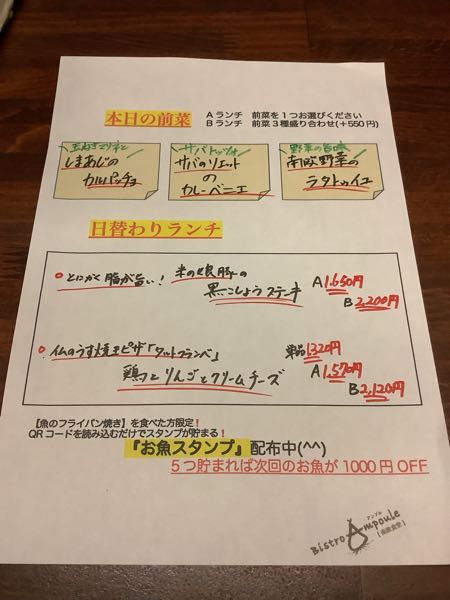 本日の前菜
Aランチ 前菜を1つお選びください
Bランチ 前菜3種盛り合わせ(+550円)
玉ねぎマリネと
しまあじの
カルパッチョ
サバトッツォ
サバのリエット
の
カレーベニエ
野菜の旨味
南欧野菜の
ラタトゥイユ
日替わりランチ
とにかく脂が旨い! 米の娘豚の
黒こしょうステーキ
A1,650円
B2,200円
仏のうす焼きピザ「タルトフランベ」
鶏とりんごとクリームチーズ
単品1320円
A1,570円
B2,120円
【魚のフライパン焼き】を食べた方限定!
QRコードを読み込むだけでスタンプが貯まる!
『お魚スタンプ』配布中(^^)
5つ貯まれば次回のお魚が1000円OFF
アンプル
Bistro Ampoule